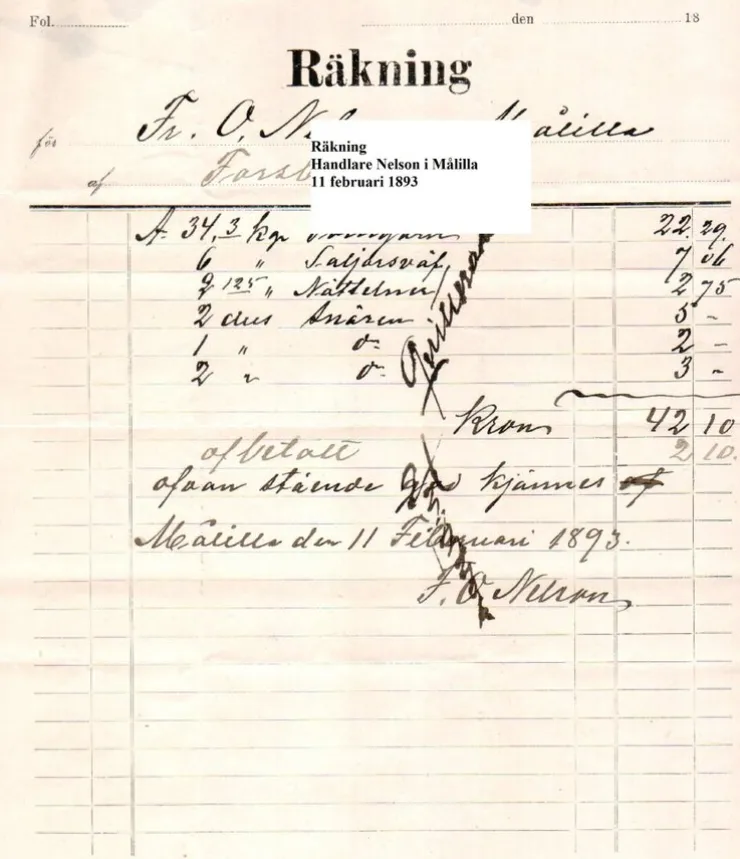 Fol. den 18
Räkning
för Fr. O. N Målilla
af Forsb
Räkning
Handlare Nelson i Målilla
11 februari 1893
A 34,3 kgr 22 29
6 " 7 06
2 125 " 2 75
2 dus Snören 5 -
1 " do 2 -
2 " do 3 -
Kronor 42 10
afbetalt 2 10
ofvan stående kjännes af
Målilla den 11 Februari 1893.
F. O. Nelson